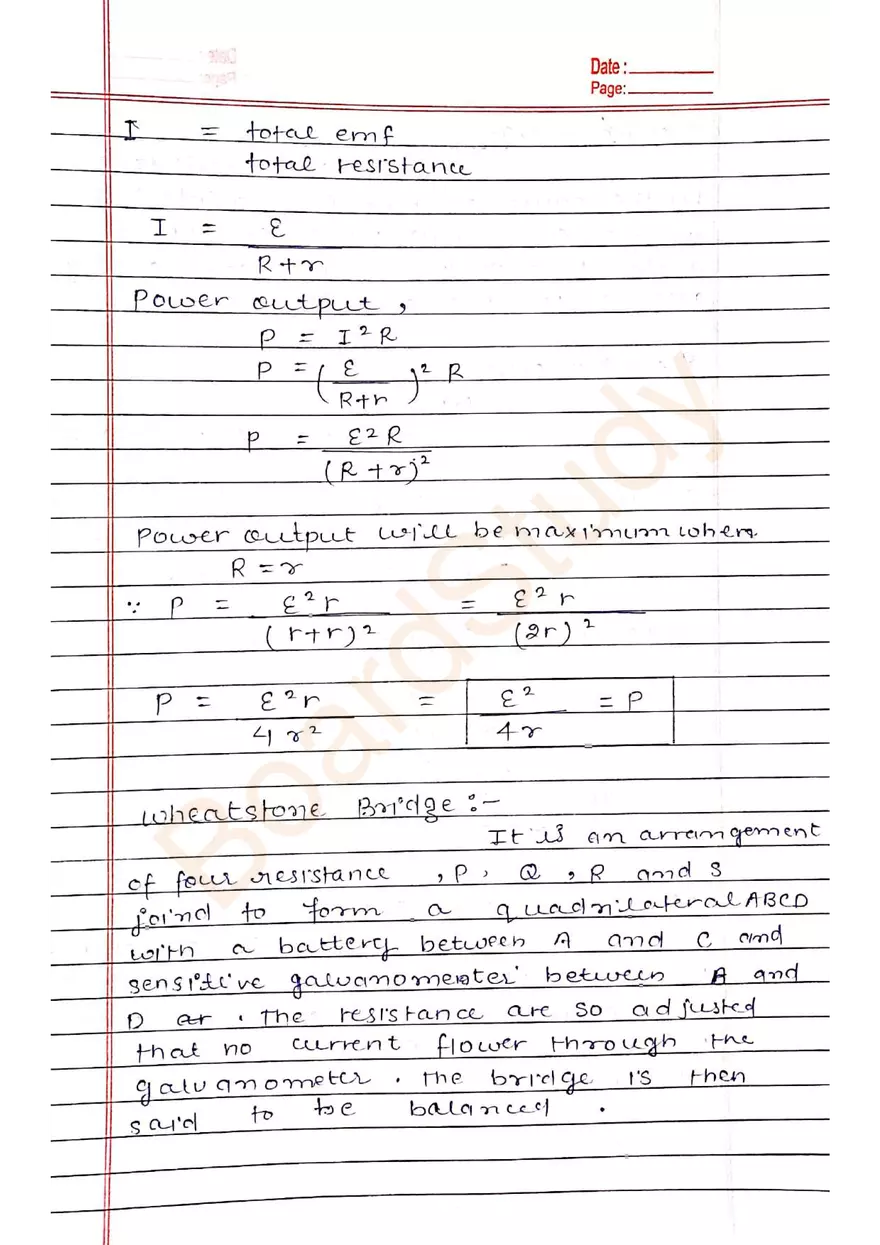 Date :
Page:
I = total emf
total resistance
I = ε
R + r
Power output ,
P = I² R
P = ( ε )² R
R+r
P = ε² R
(R + r)²
Power output will be maximum when
R = r
∵ P = ε² r = ε² r
( r+r )² (2r)²
P = ε² r = ε² = P
4 r² 4r
Wheatstone Bridge :-
It is an arrangement
of four resistance , P , Q , R and S
joind to form a quadrilateral ABCD
with a battery between A and C and
sensitive galvanometer between A and
D or . The resistance are so adjusted
that no current flower through the
galvanometer . the bridge is then
said to be balanced .
BoardStudy